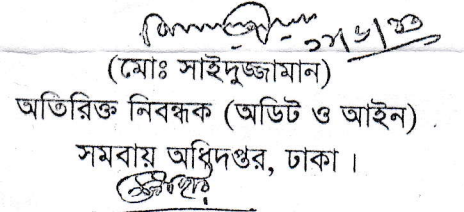 (মোঃ সাইদুজ্জামান)
অতিরিক্ত নিবন্ধক (অডিট ও আইন)
সমবায় অধিদপ্তর, ঢাকা ।